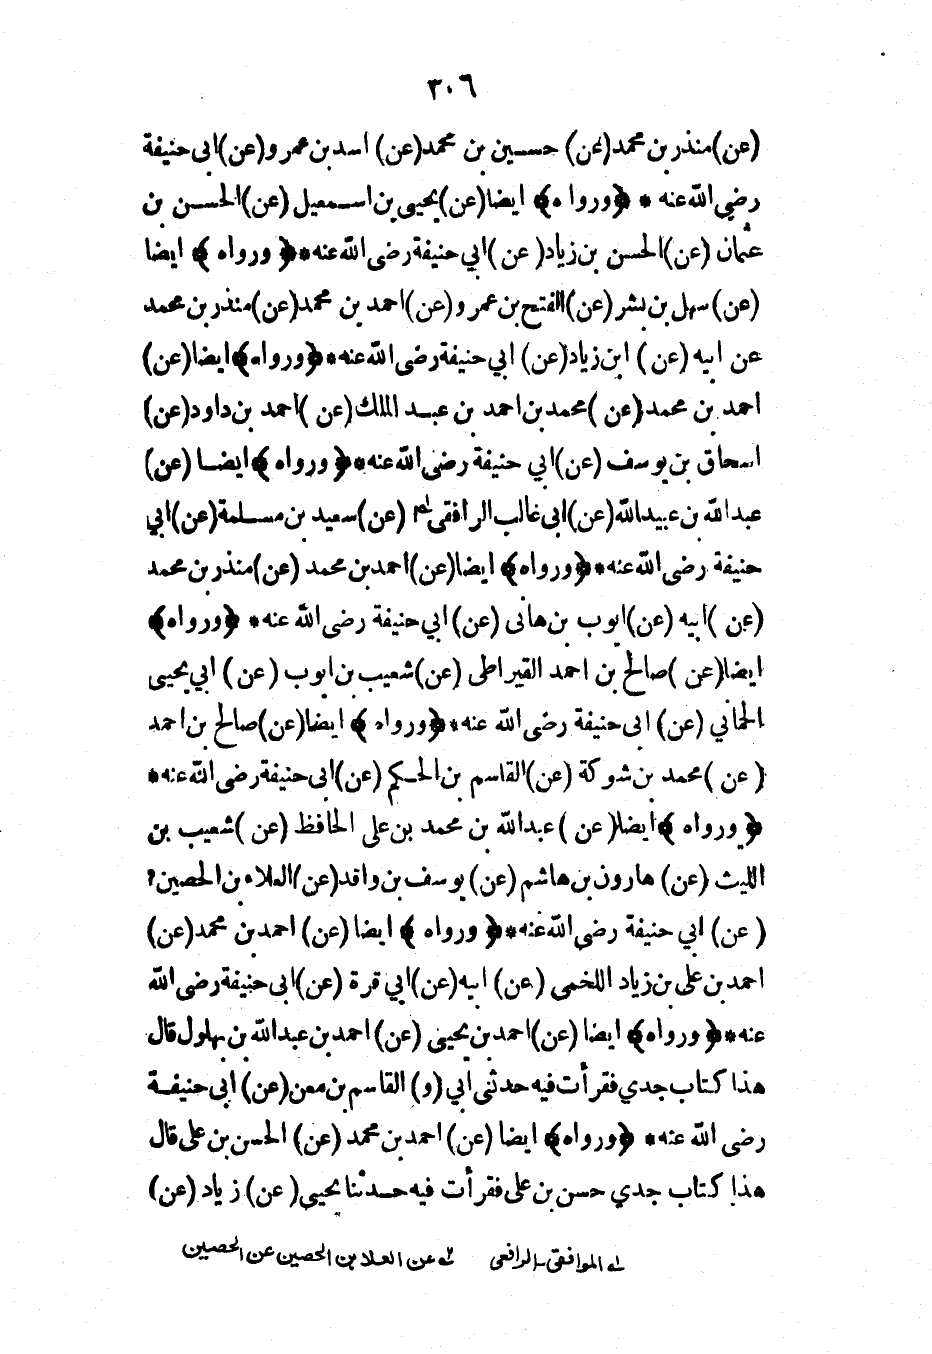 ٣٠٦
(عن) منذر بن محمد (عن) حسين بن محمد (عن) اسد بن عمر و (عن) ابى حنيفة
رضي الله عنه * ﴿ ورواه ﴾ ايضا (عن) يحيى بن اسمعيل (عن) الحسن بن
عثمان (عن) الحسن بن زياد (عن) ابي حنيفة رضى الله عنه * ﴿ ورواه ﴾ ايضا
(عن) سهل بن بشر (عن) الفتح بن عمر و (عن) احمد بن محمد (عن) منذر بن محمد
عن ابيه (عن) ابن زياد (عن) ابي حنيفة رضى الله عنه * ﴿ ورواه ﴾ ايضا (عن)
احمد بن محمد (عن) محمد بن احمد بن عبد الملك (عن) احمد بن داود (عن)
اسحاق بن يوسف (عن) ابي حنيفة رضى الله عنه * ﴿ ورواه ﴾ ايضا (عن)
عبدالله بن عبيدالله (عن) ابى غالب الرافقى (عن) سعيد بن مسلمة (عن) ابي
حنيفة رضى الله عنه * ﴿ ورواه ﴾ ايضا (عن) احمد بن محمد (عن) منذر بن محمد
(عن) ابيه (عن) ايوب بن هانى (عن) ابي حنيفة رضى الله عنه * ﴿ ورواه ﴾
ايضا (عن) صالح بن احمد القيراطى (عن) شعيب بن ايوب (عن) ابي يحيى
الحمانى (عن) ابى حنيفة رضى الله عنه * ﴿ ورواه ﴾ ايضا (عن) صالح بن احمد
(عن) محمد بن شوكة (عن) القاسم بن الحكم (عن) ابى حنيفة رضى الله عنه *
﴿ ورواه ﴾ ايضا (عن) عبدالله بن محمد بن على الحافظ (عن) شعيب بن
الليث (عن) هارون بن هاشم (عن) يوسف بن واقد (عن) العلاء بن الحصين ٢
(عن) ابي حنيفة رضى الله عنه * ﴿ ورواه ﴾ ايضا (عن) احمد بن محمد (عن)
احمد بن على بن زياد اللخمى (عن) ابيه (عن) ابي قرة (عن) ابى حنيفة رضى الله
عنه * ﴿ ورواه ﴾ ايضا (عن) احمد بن يحيى (عن) احمد بن عبدالله بن بهلول قال
هذا كتاب جدي فقرأت فيه حدثنى ابي (و) القاسم بن معن (عن) ابى حنيفة
رضى الله عنه * ﴿ ورواه ﴾ ايضا (عن) احمد بن محمد (عن) الحسن بن على قال
هذا كتاب جدي حسن بن على فقرأت فيه حدثنا يحيى (عن) زياد (عن)
له الموافقى ـ الرافعى ٢ه عن العلا بن الحصين عن الحصين